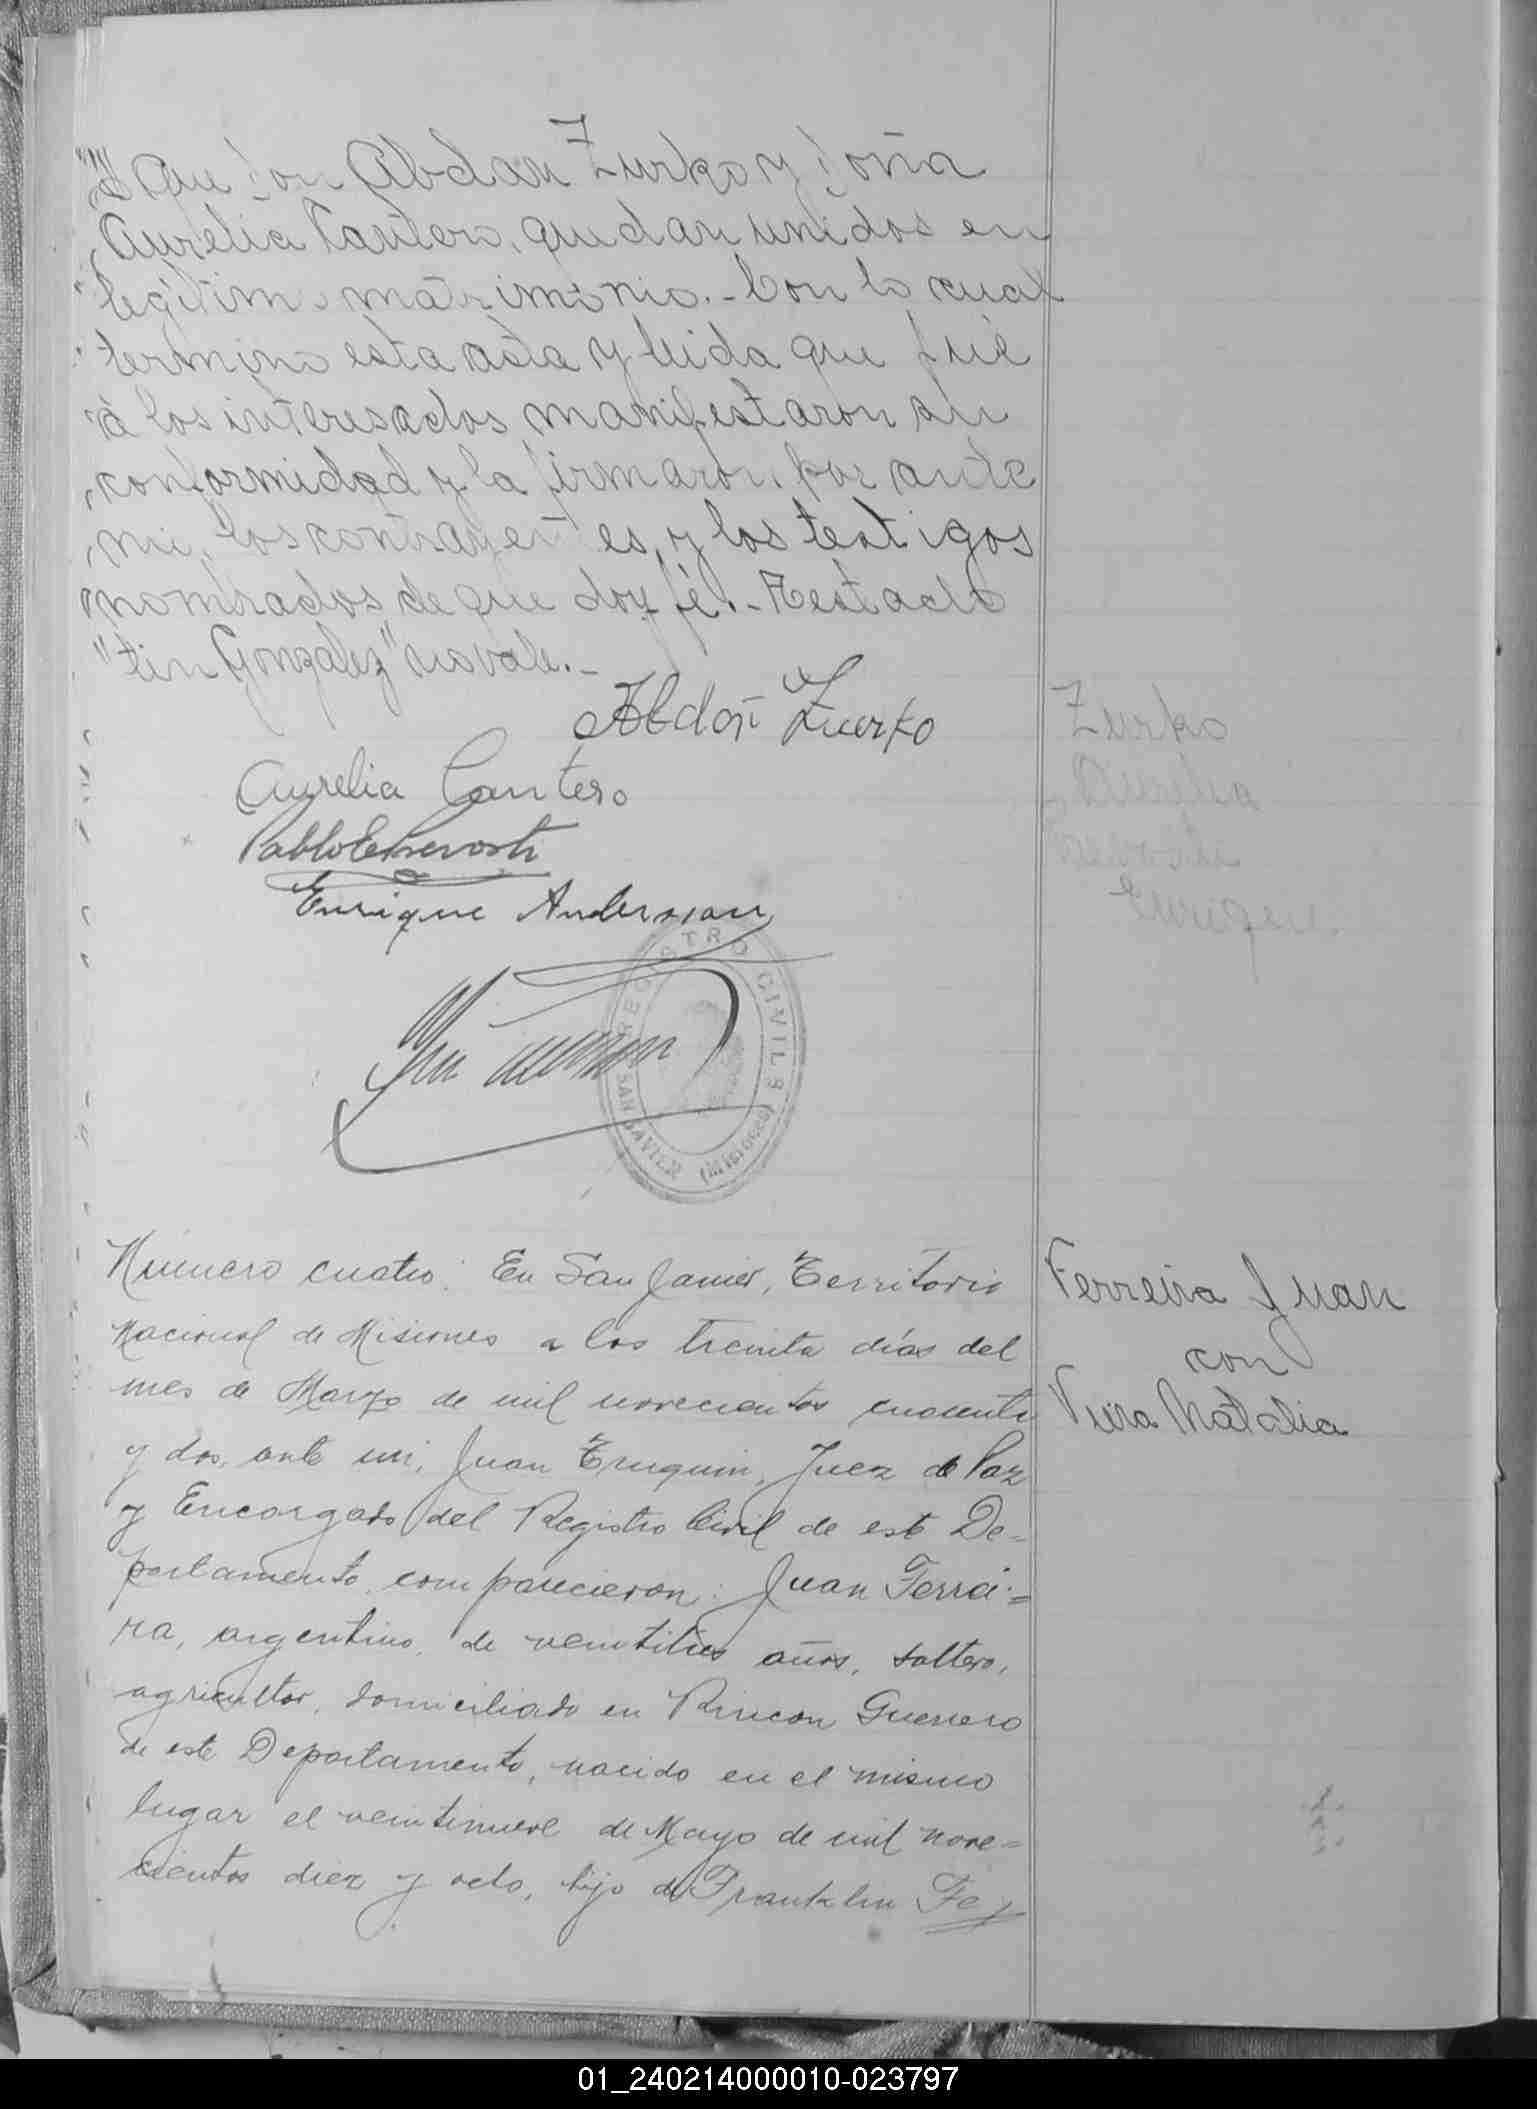 que don Abdan Zurko y doña
Aurelia Cantero, quedan unidos en
legitimo matrimonio.- Con lo cual
termino esta acta y leida que fué
á los interesados manifestaron su
conformidad y la firmaron por ante
mi, los contrayentes, y los testigos
nombrados de que doy fé.- Testado
"tin Gonzalez" no vale.-
Abdon Zurko
Aurelia Cantero
Pablo
Enrique Anderson
REGISTRO CIVIL
SAN JAVIER (Misiones)
Zurko
Aurelia
Enrique
Número cuatro: En San Javier, Territorio
Nacional de Misiones a los treinta días del
mes de Marzo de mil novecientos cuarenta
y dos, ante mi, Juan Truquin, Juez de Paz
y Encargado del Registro Civil de este De=
partamento comparecieron: Juan Ferrei=
ra, argentino, de veintitres años, soltero,
agricultor, domiciliado en Rincon Guerrero
de este Departamento, nacido en el mismo
lugar el veintinueve de Mayo de mil nove=
cientos diez y ocho, hijo de Franklin Fe
Ferreira Juan
con
Natalia
01_240214000010-023797